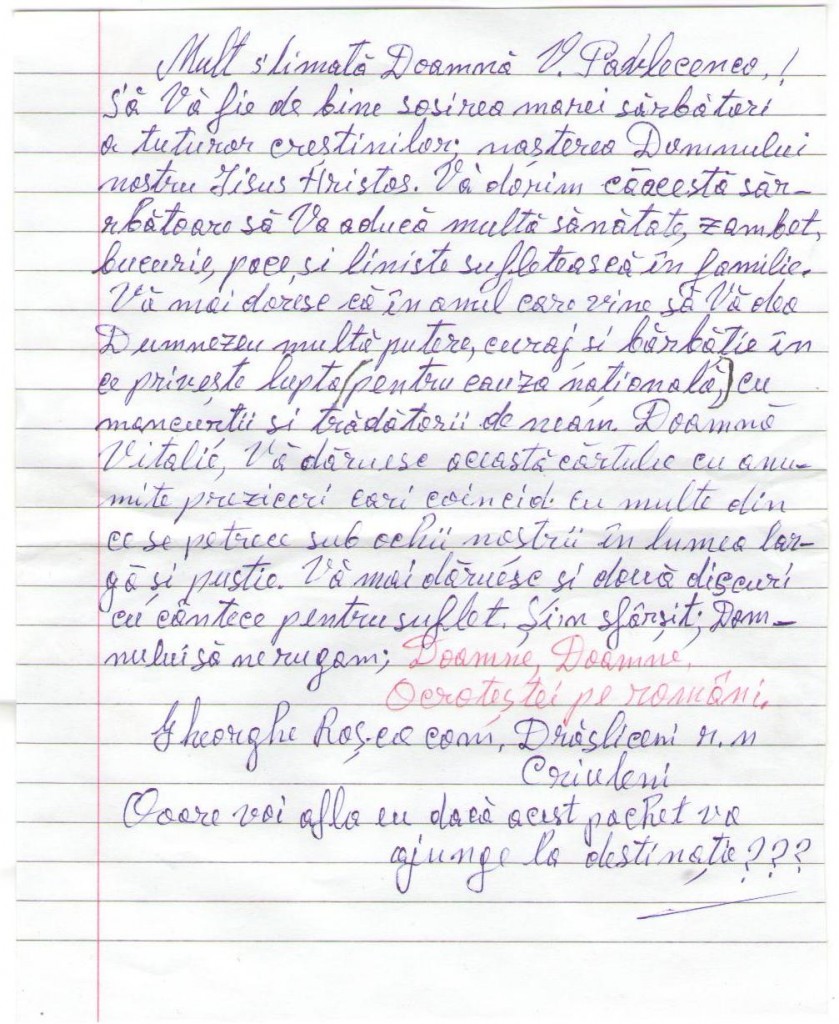 Mult stimată Doamnă V. Pavlecenco,!
Să Vă fie de bine sosirea marei sărbători
a tuturor creștinilor; nașterea Domnului
nostru Iisus Hristos. Vă dorim căacestă săr-
rbătoare să Va aducă multă sănătate, zambet,
bucurie, pace, și liniște sufletească în familie.
Vă mai doresc că în anul care vine să Vă dea
Dumnezeu multă putere, curaj si bărbăție în
ce privește lupta (pentru cauza națională,) cu
mancurții și trădătorii de neam. Doamnă
Vitalie, Vă dăruesc această cărtulie cu anu-
mite preziceri cari coincid cu multe din
ce se petrec sub ochii noștrii în lumea lar-
gă și pustie. Vă mai dăruesc si două discuri
cu cântece pentru suflet. Și în sfârșit; Dom-
nului să ne rugam; Doamne, Doamne,
Ocroteștei pe români.
Gheorghe Roșca com, Drăsliceni r.n
Criuleni
Ooare voi afla eu dacă acest pachet va
ajunge la destinație???